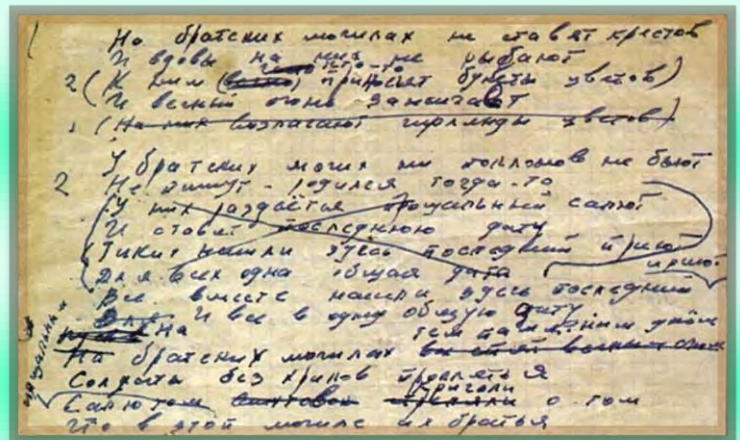 На братских могилах не ставят крестов
И вдовы на них не рыдают
2 (К ним кто-то приносит букеты цветов)
И вечный огонь зажигает
1 (На них возлагают гирлянды цветов)
У братских могил ни поклонов не бьют
2 Не пишут - родился тогда-то
(У них раздаётся прощальный салют
И ставят последнюю дату
нашли здесь последний приют
Для всех одна общая дата
приют
Все вместе нашли здесь последний
Для И все в одну общую дату
На тем
На братских могилах
Солдаты без хрипов
Салютом о том
Что в этой могиле их братья